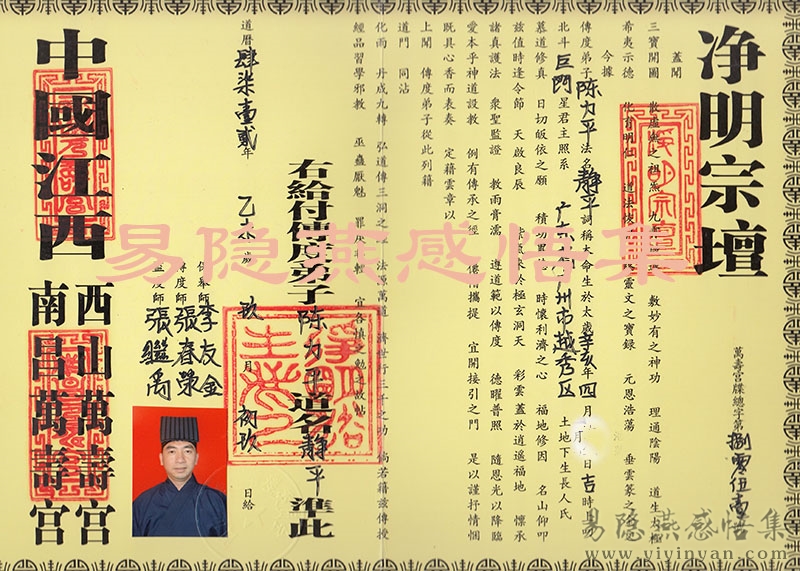 净明宗壇
萬壽宮牒總字第捌零伍壹
蓋聞
三寶開圖
希夷示德
今據
傳度弟子陈力平法名静平詞稱大命生於太歲辛亥年四月
北斗巨門星君主照系广东 州市越秀区 土地下生長人氏
慕道修真 日切皈依之願 積功累 時懷利濟之心 福地修因 名山仰叩
兹值時逢令節 天啟良辰 於極玄洞天 彩雲蓋於逍遙福地 懷承
諸真護法 衆聖監證 教雨膏濡 遵道範以傳度 德曜普照 隨恩光以降臨
愛本乎神道設教 例有傳承之徑 攜提 宜開接引之門 是以謹抒情悃
既具心香而表奏 定籍雲章以
上聞 傳度弟子從此列籍
道門 同沾
化雨 丹成九轉 弘道傳三洞之 法源萬道 濟世行三千之功 倘若籍兹傳授
經品習學邪教 巫蠱厭魅 罪 宜各慎之勉之故帖
右給付傳度弟子陈力平道名静平準此
道曆肆柒壹贰年 乙未歲 玖月初玖日給
保舉師李友金
傳度師張春榮
監度師張繼禹
中國江西
西山萬壽宮
南昌萬壽宮
易隐燕感悟集
易隐燕感悟集
www.yiyinyan.com